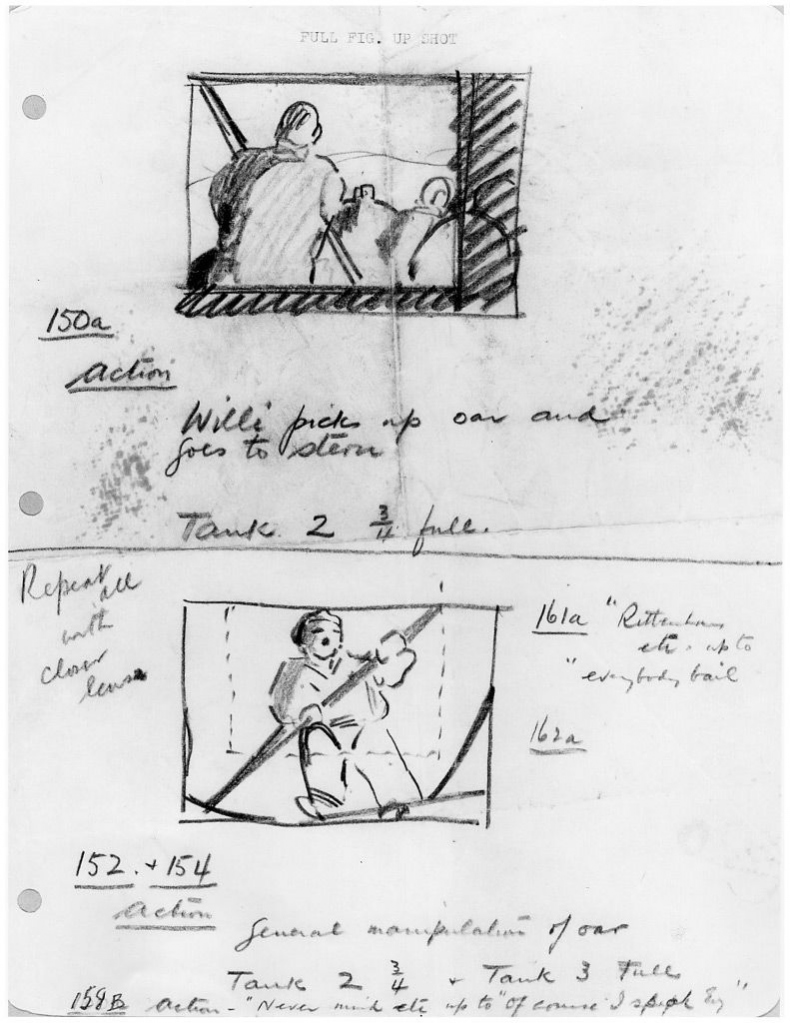 FULL FIG. UP SHOT
150a
Action
Willi picks up oar and
goes to stern
Tank 2 3/4 full.
Repeat all
with
closer
lens
161a "Rittenhaus
etc. up to
"everybody bail
162a
152. + 154
Action
General manipulation of oar
Tank 2 3/4 + Tank 3 Full
158B action - "Never mind etc up to "Of course I speak Eng"